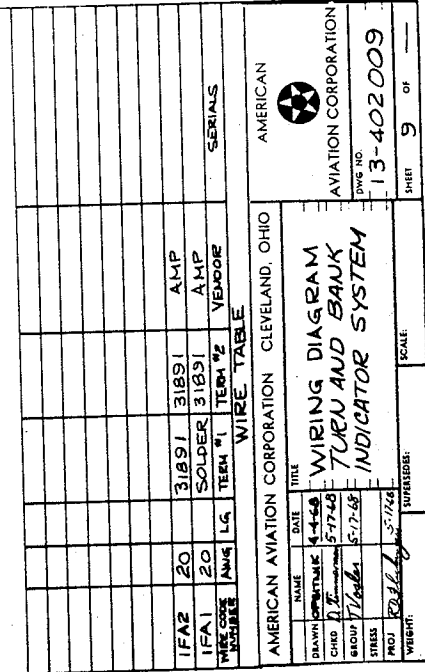 1FA2 20 31891 31891 AMP
1FA1 20 SOLDER 31891 AMP
WIRE CODE NUMBER AWG LG TERM #1 TERM #2 VENDOR SERIALS
WIRE TABLE
AMERICAN AVIATION CORPORATION CLEVELAND, OHIO
AMERICAN
AVIATION CORPORATION
NAME DATE
DRAWN 4-4-68
CHKD 5-17-68
GROUP 5-17-68
STRESS
PROJ 5-17-68
WEIGHT:
TITLE
WIRING DIAGRAM
TURN AND BANK
INDICATOR SYSTEM
SUPERSEDES:
SCALE:
DWG NO.
13-402009
SHEET 9 OF —